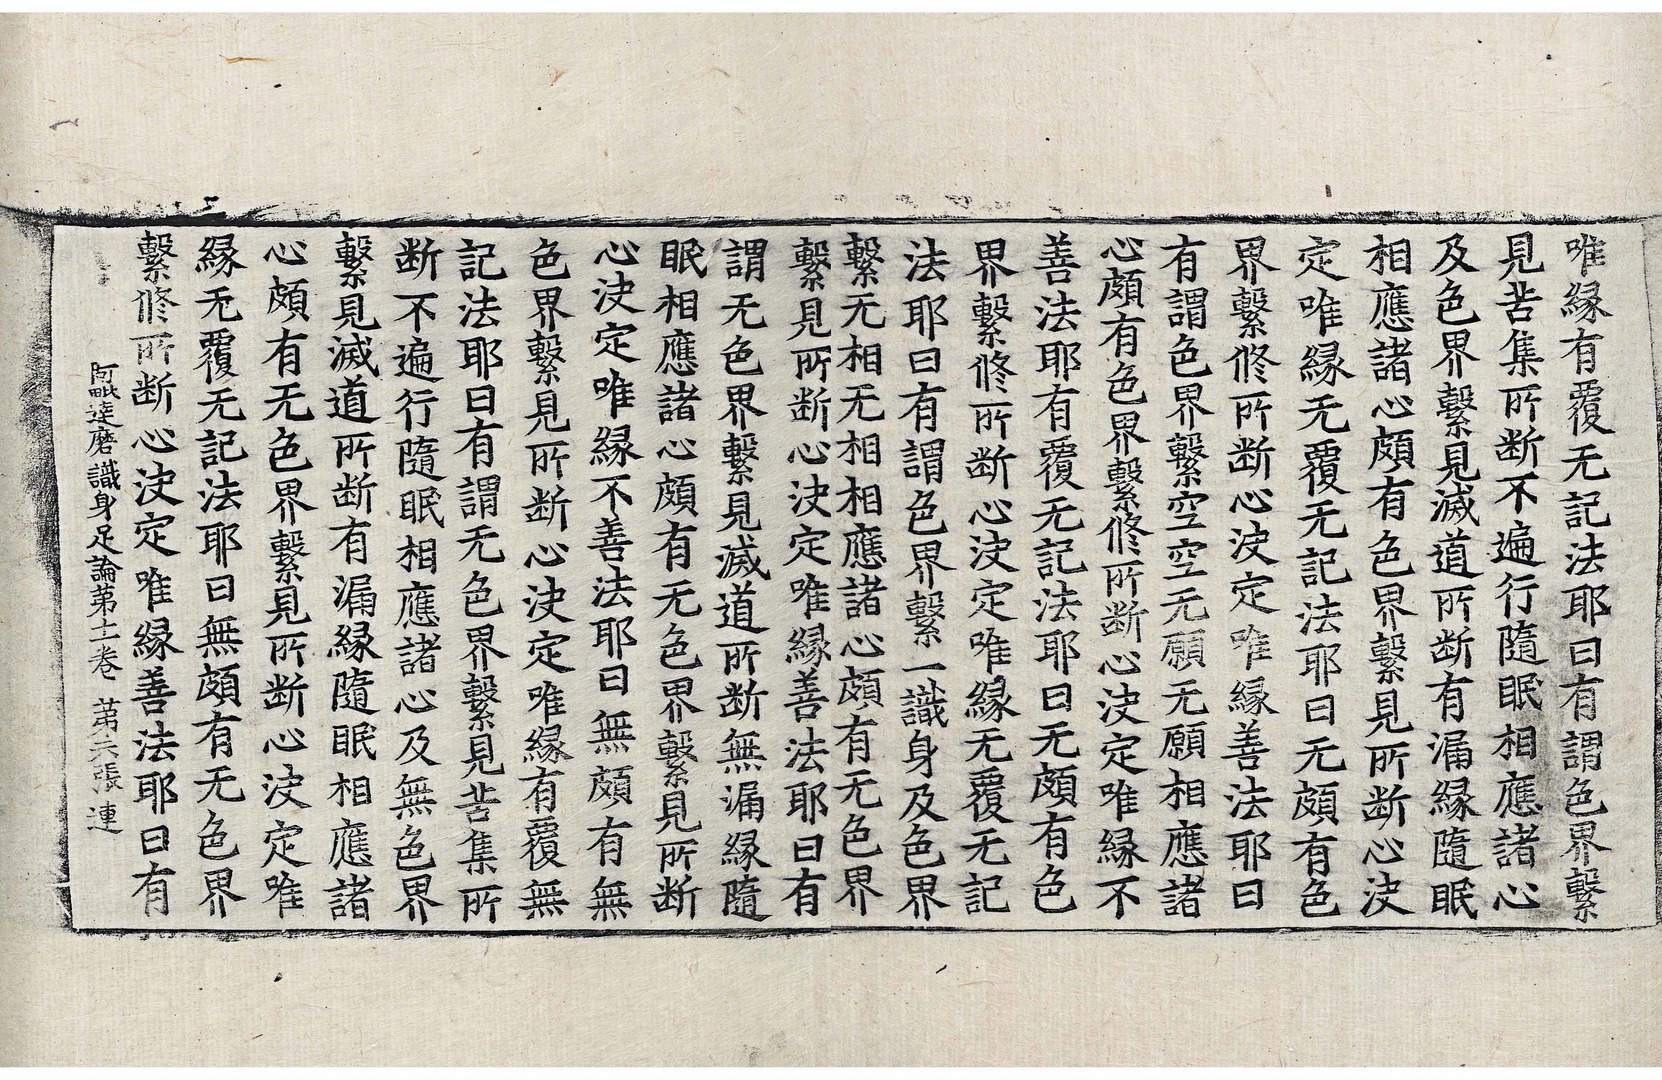 唯縁有覆无記法耶曰有謂色界繫
見苦集所断不遍行隨眠相應諸心
及色界繫見滅道所断有漏縁隨眠
相應諸心頗有色界繫見所断心決
定唯縁无覆无記法耶曰无頗有色
界繫修所断心決定唯縁善法耶曰
有謂色界繫空空无願无願相應諸
心頗有色界繫修所断心決定唯縁不
善法耶有覆无記法耶曰无頗有色
界繫修所断心決定唯縁无覆无記
法耶曰有謂色界繫一識身及色界
繫无相无相相應諸心頗有无色界
繫見所断心決定唯縁善法耶曰有
謂无色界繫見滅道所断無漏縁隨
眠相應諸心頗有无色界繫見所断
心決定唯縁不善法耶曰無頗有無
色界繫見所断心決定唯縁有覆無
記法耶曰有謂无色界繫見苦集所
断不遍行隨眠相應諸心及無色界
繫見滅道所断有漏縁隨眠相應諸
心頗有无色界繫見所断心決定唯
縁无覆无記法耶曰無頗有无色界
繫修所断心決定唯縁善法耶曰有
阿毗達磨識身足論第十一卷 第六張 連